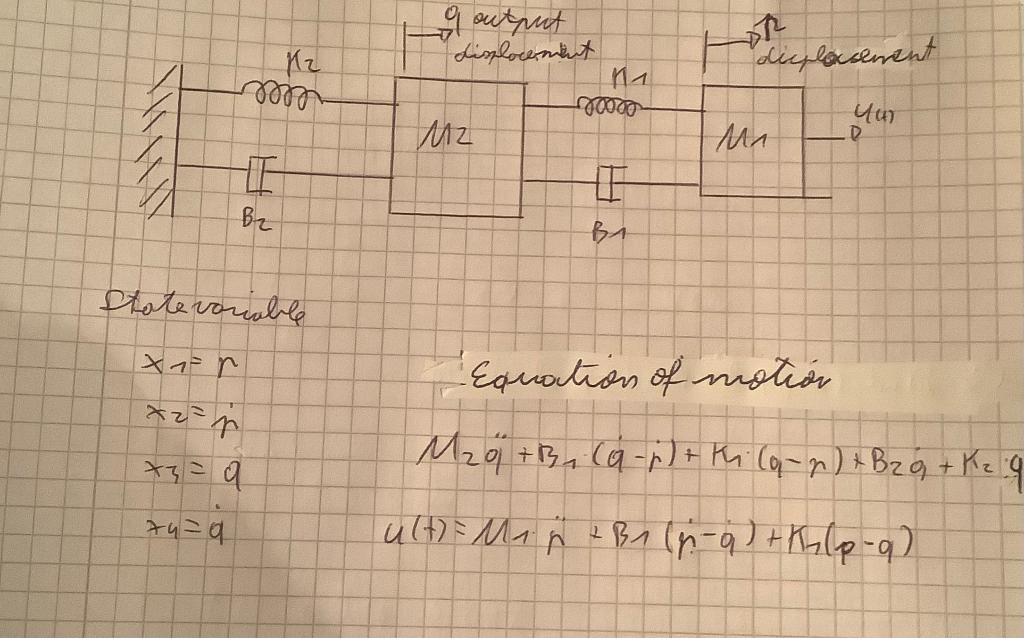 q output
displacement
p
displacement
K2
K1
M2
M1
u(t)
B2
B1
State variable
x1 = p
x2 = ṗ
x3 = q
x4 = q̇
Equation of motion
M2 q̈ + B1 · (q̇ - ṗ) + K1 · (q - p) + B2 q̇ + K2 · q
u(t) = M1 · p̈ + B1 (ṗ - q̇) + K1 (p - q)